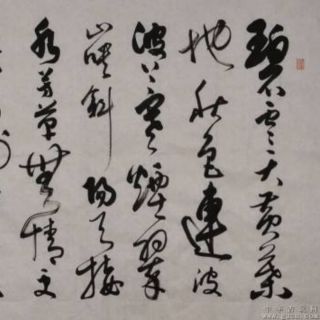 碧雲天黄葉
地秋色連波
波上寒煙翠
山映斜陽天接
水芳草無情更